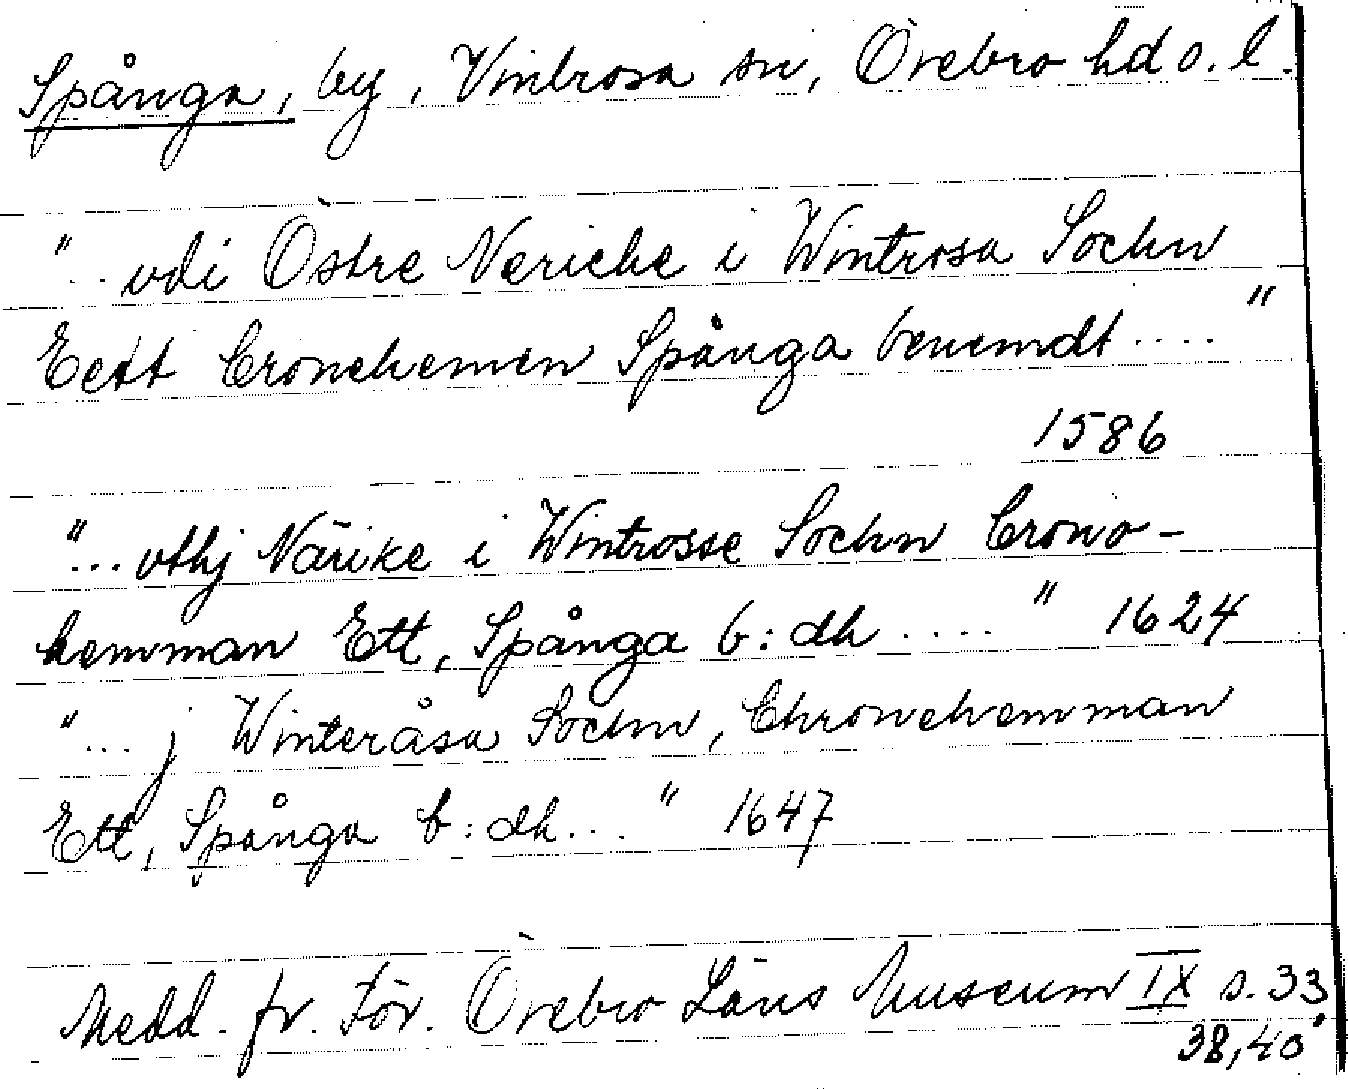 Spånga, by, Vintrosa sn, Örebro hd o. l.
"... vdi Östre Nericke i Wintrosa Sochn
Eett Cronehemen Spånga benemdt .... "
1586
"... vthj Närike i Wintrosse Sochn Crono-
hemman Ett, Spånga b:dh .... " 1624
"... j Winteråsa Sochn, Chronehemman
Ett, Spånga b:dh ... " 1647
Medd. fr. För. Örebro Läns Museum IX s. 33,
38, 40